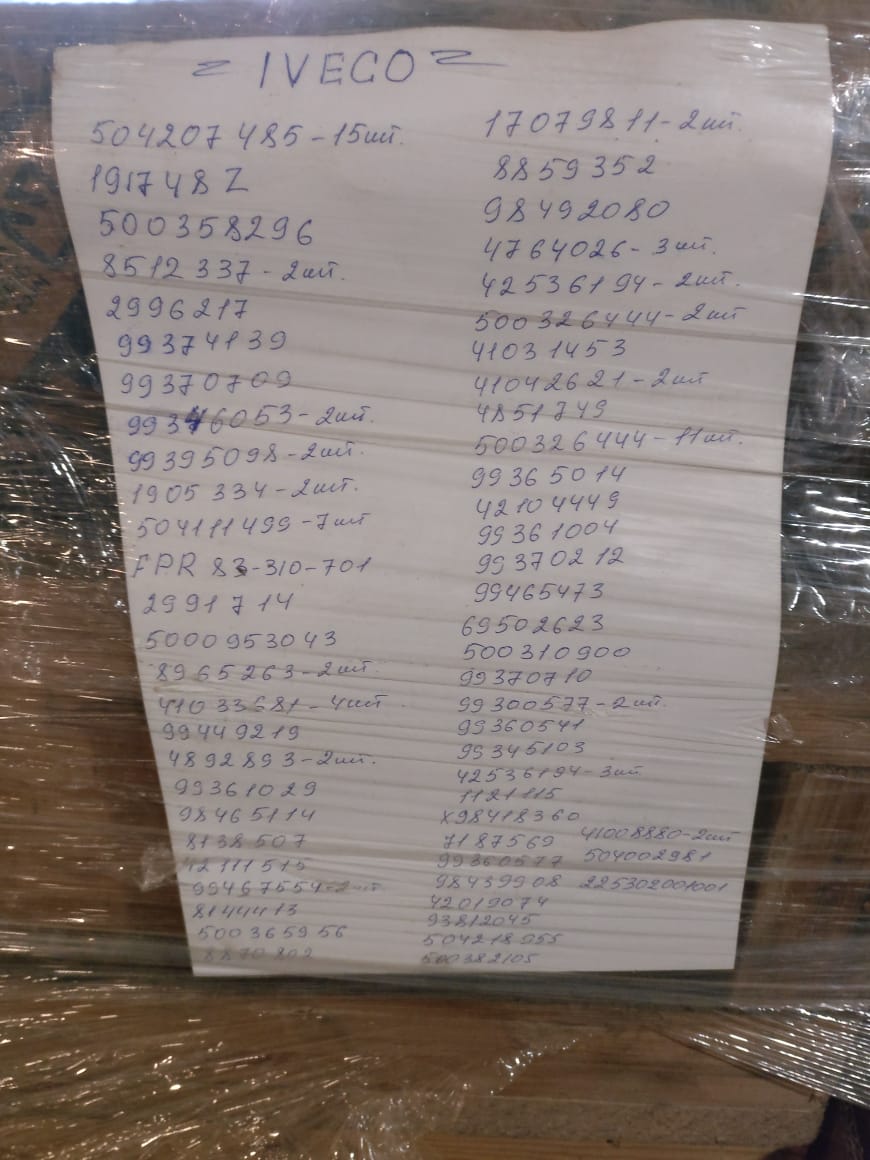 = IVECO =
504207485 - 15шт.
191748Z
500358296
8512337 - 2шт.
2996217
99374139
99370709
99346053 - 2шт.
99395098 - 2шт.
1905334 - 2шт.
504111499 - 7шт
FPR 83-310-701
2991714
5000953043
8965263 - 2шт.
41033681 - 4шт
99449219
4892893 - 2шт.
99361029
98465114
8138507
42111515
99467554 - 2шт
8144413
500365956
8870802
17079811 - 2шт.
8859352
98492080
4764026 - 3шт.
42536194 - 2шт.
500326444 - 2шт
41031453
41042621 - 2шт
4851749
500326444 - 11шт.
99365014
42104449
99361004
99370212
99465473
69502623
500310900
99370710
99300577 - 2шт.
99360541
99345103
42536194 - 3шт
1121115
X98418360
7187569
99360577
98439908
42019074
93812045
504218955
500382105
41008880 - 2шт
504002981
225302001001